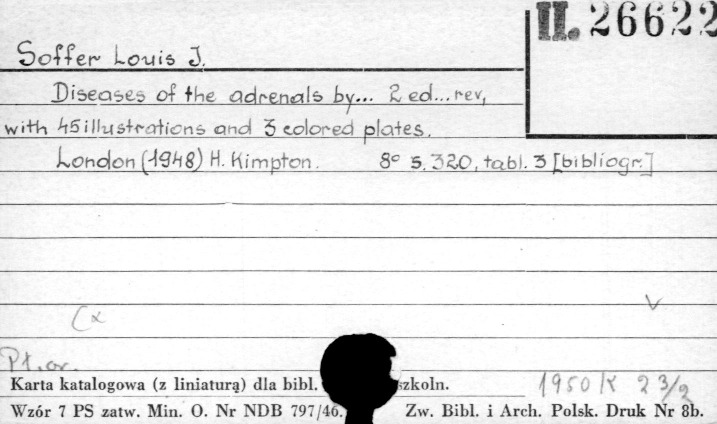 II. 26622
Soffer Louis J.
Diseases of the adrenals by... 2 ed... rev,
with 45 illustrations and 3 colored plates.
London (1948) H. Kimpton. 8° s. 320, tabl. 3 [bibliogr.]
Pł. or.
Karta katalogowa (z liniaturą) dla bibl. szkoln.
1950/K 2 3/2
Wzór 7 PS zatw. Min. O. Nr NDB 797/46. Zw. Bibl. i Arch. Polsk. Druk Nr 8b.